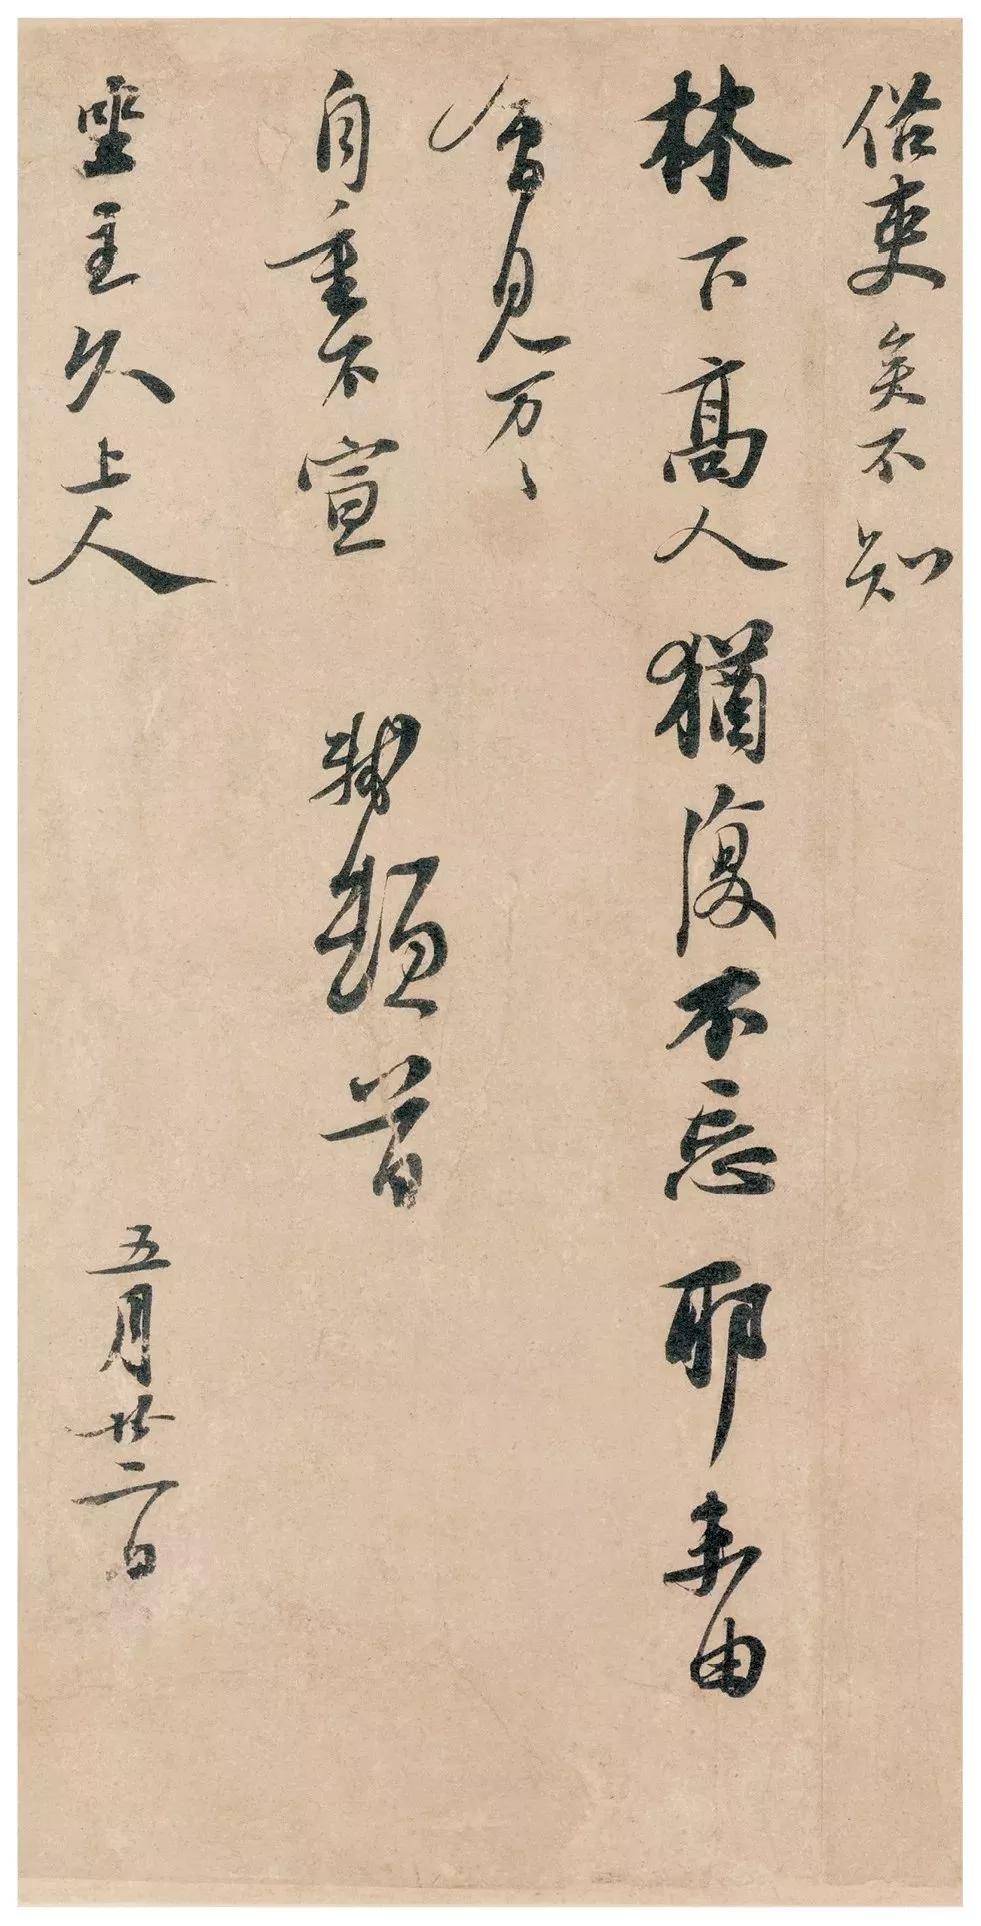 俗吏矣不知
林下高人猶復不忘耶未由
會見万〻
自重不宣　轼頓首
坐主久上人
五月廿二日